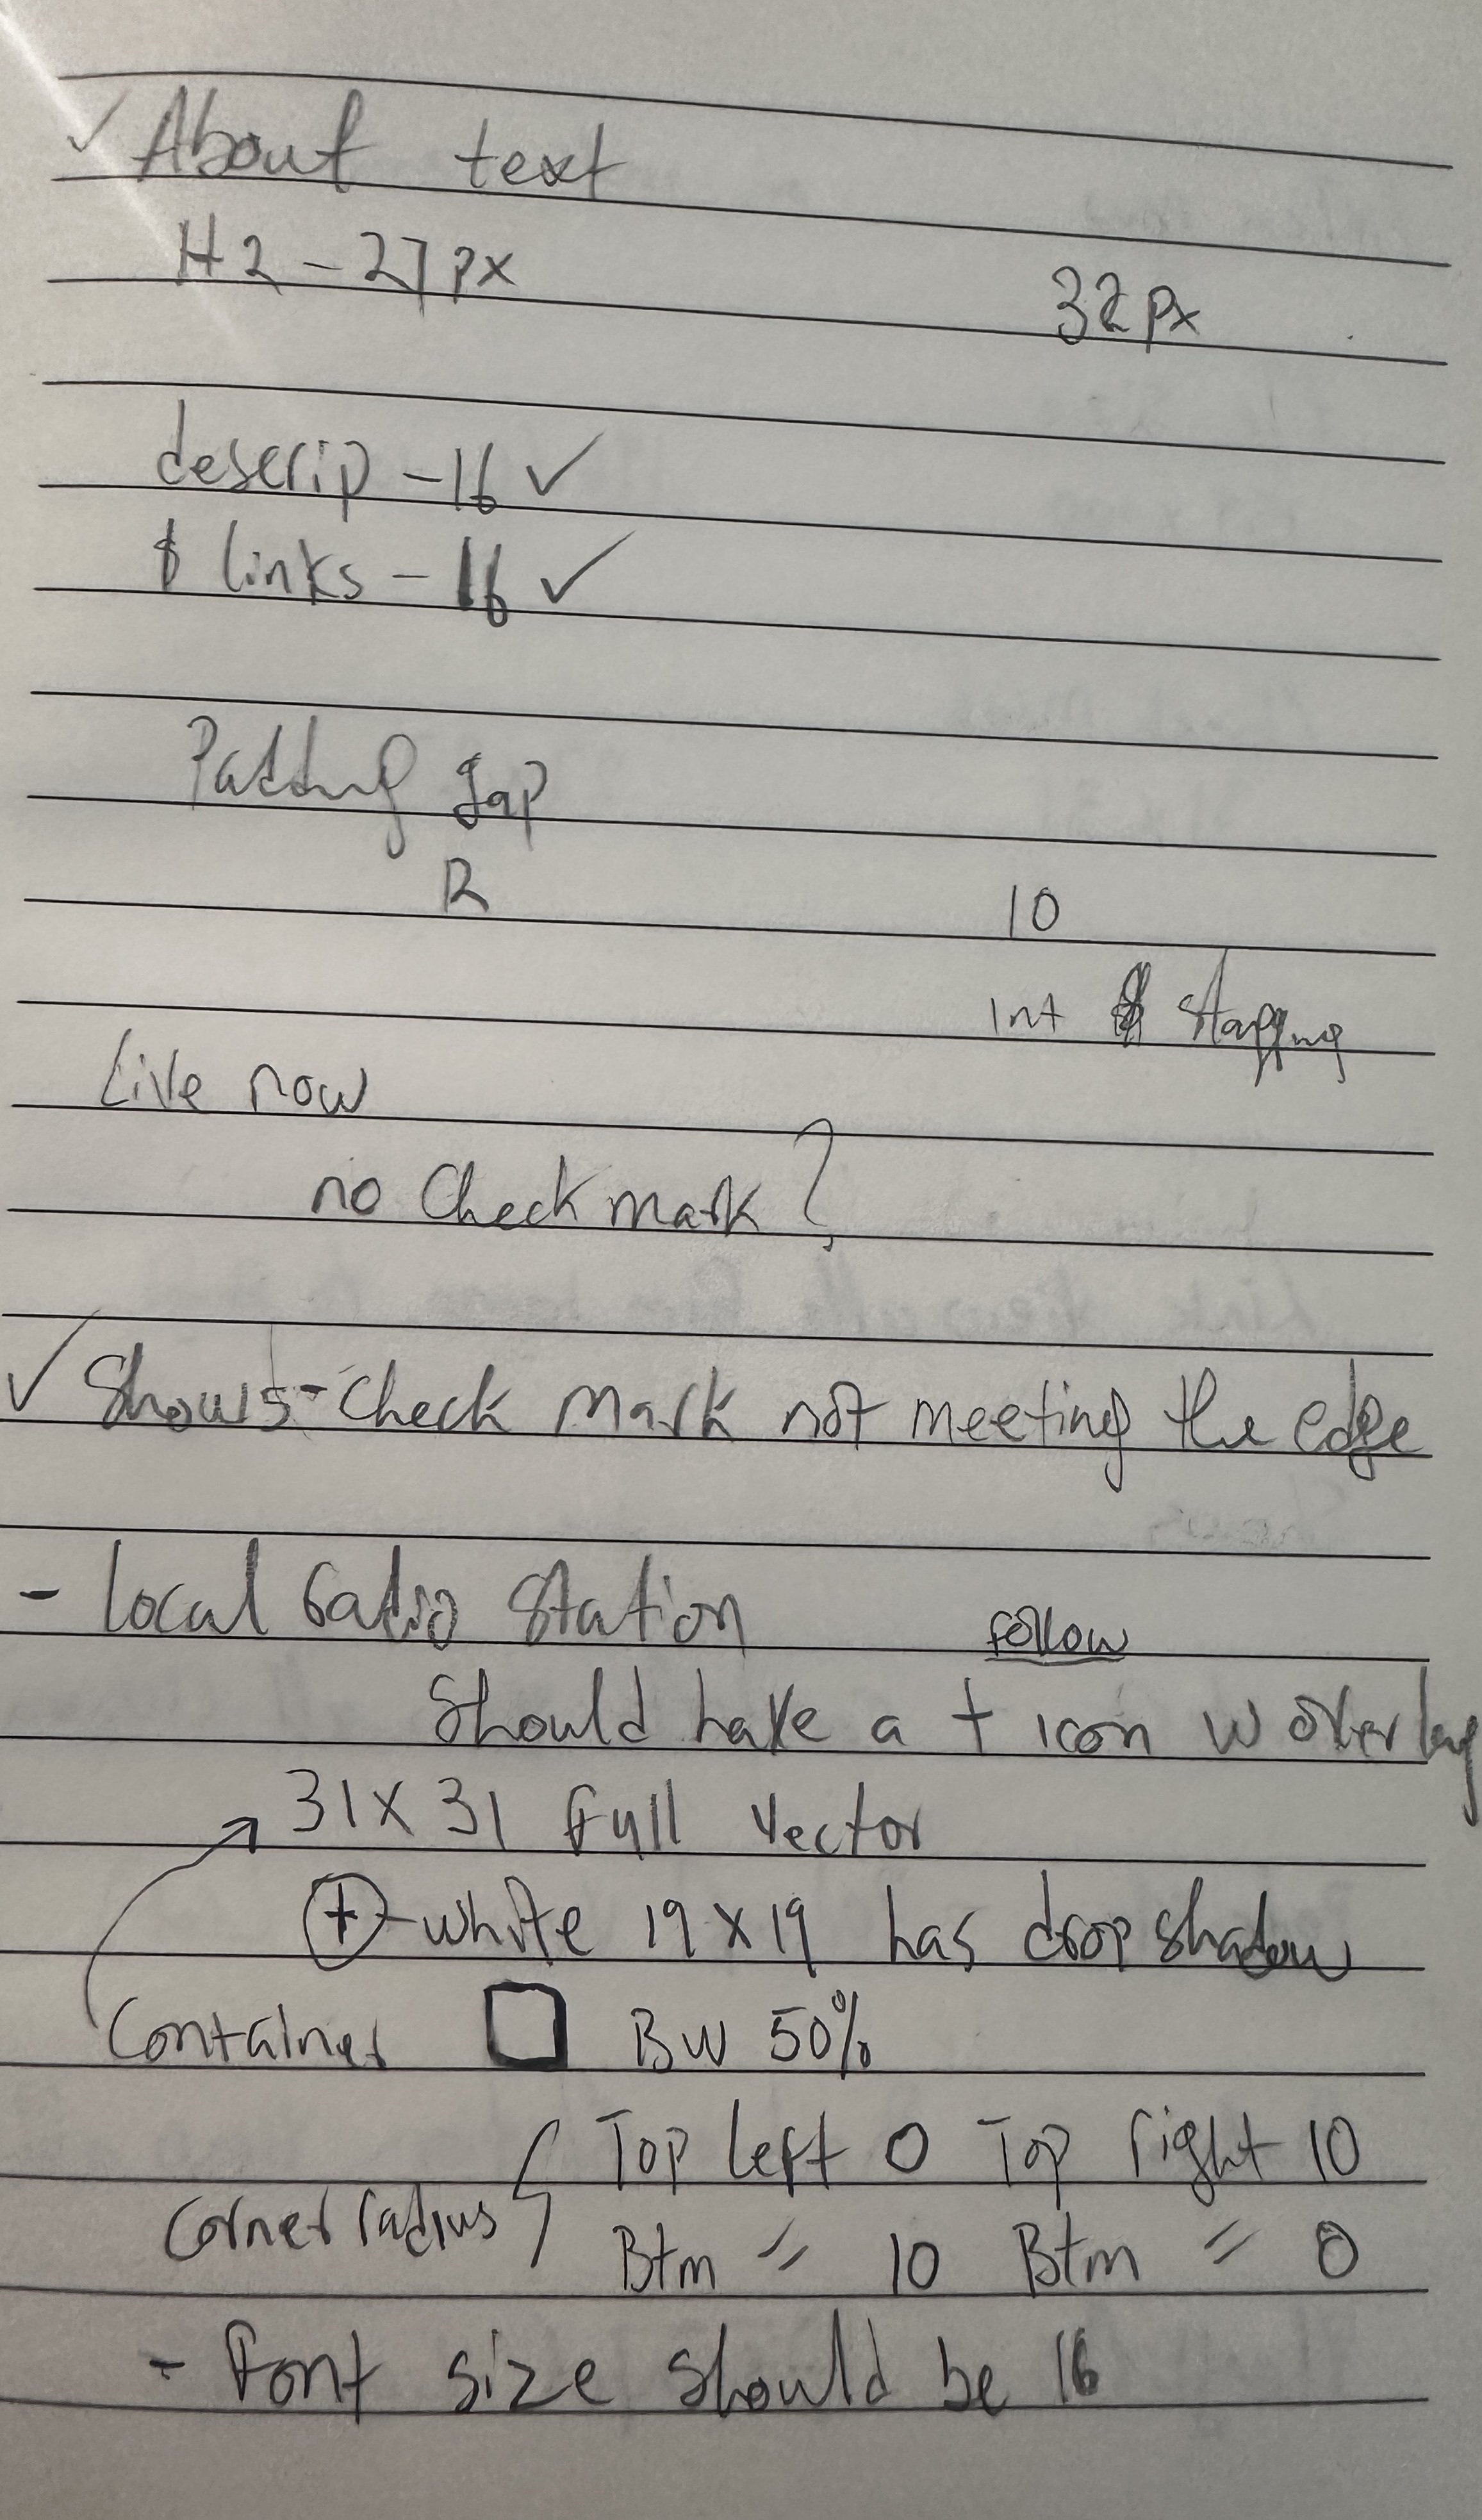 ✓ About text
H2 - 27px 32px
descrip - 16 ✓
$ links - 16 ✓
Padding gap
12 10
int stagging
Live now
no Checkmark?
✓ Shows - Check mark not meeting the edge
- local radio station
follow
Should have a + icon w overlay
31 x 31 full vector
+ - white 19 x 19 has drop shadow
Container BW 50%
Top left 0 Top right 10
Corner radius
Btm " 10 Btm " 0
- Font size should be 16